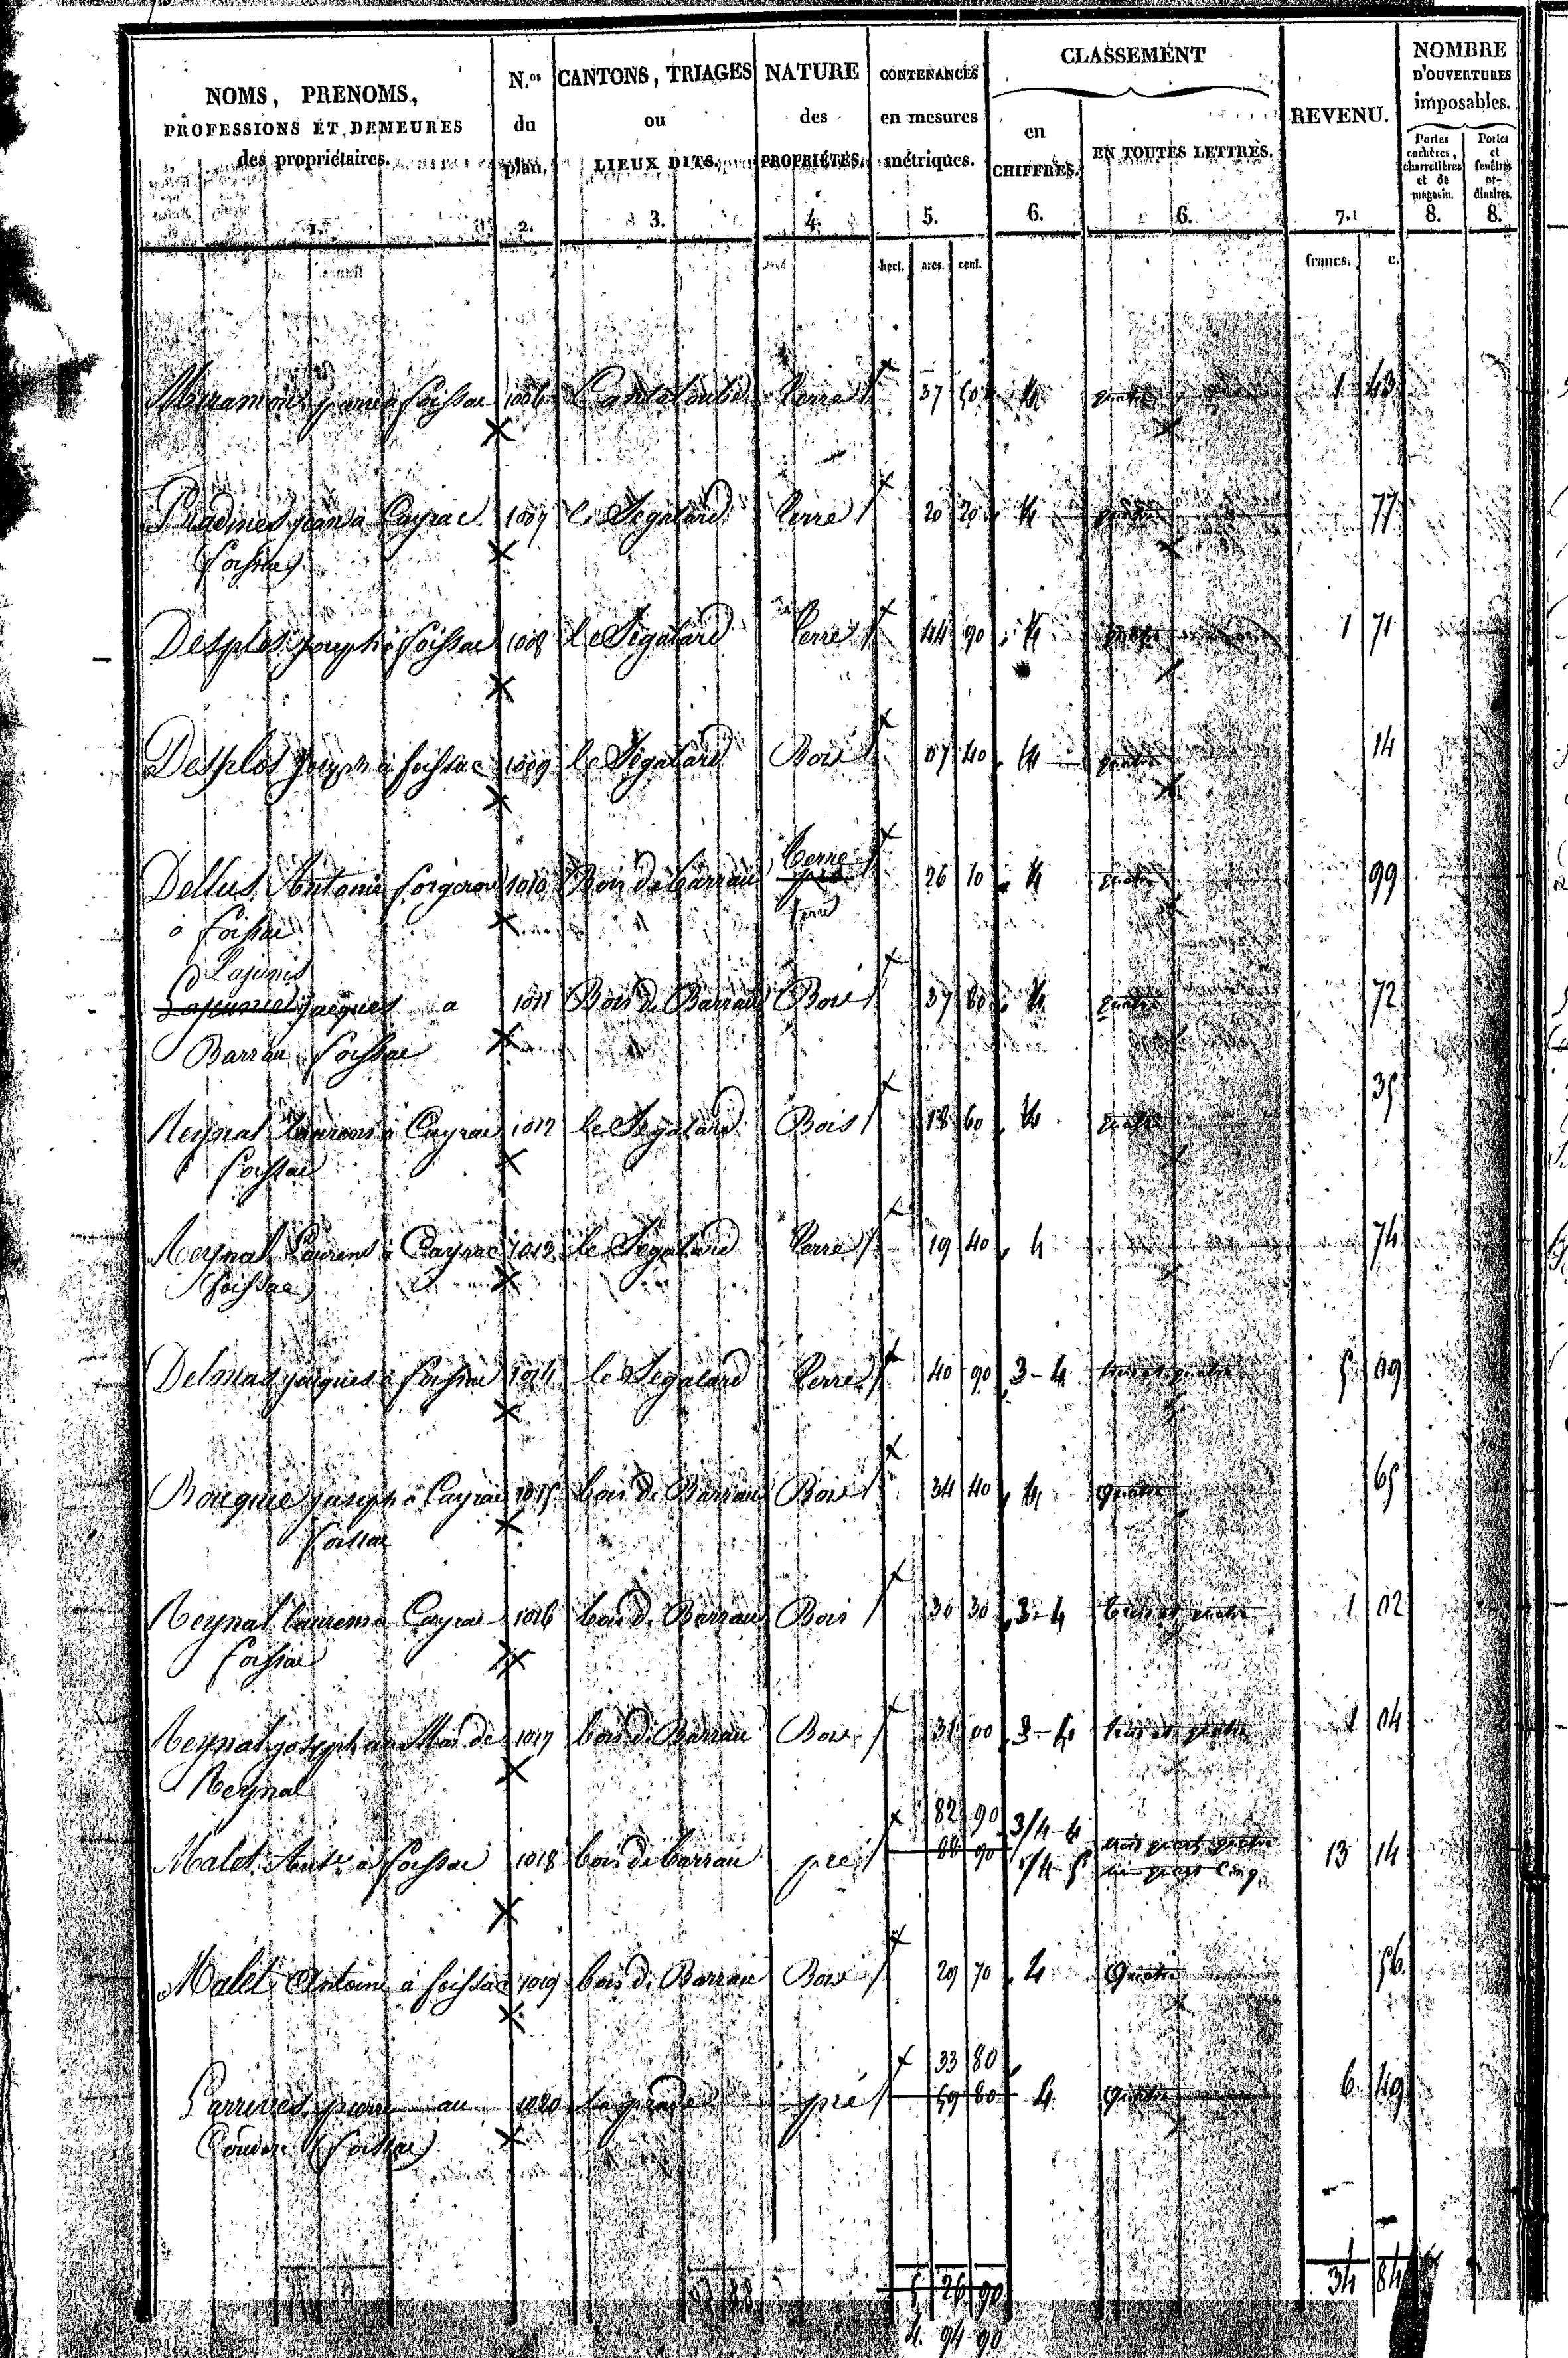 NOMS, PRENOMS, PROFESSIONS ET DEMEURES des propriétaires. N.os du plan. CANTONS, TRIAGES ou LIEUX DITS. NATURE des PROPRIÉTÉS. CONTENANCES en mesures métriques. CLASSEMENT en CHIFFRES. EN TOUTES LETTRES. REVENU. NOMBRE D'OUVERTURES imposables. Portes cochères, charretières et de magasin. Portes et fenêtres ordinaires.
1. 2. 3. 4. 5. 6. 6. 7. 8. 8.
hect. ares. cent. francs. c.
à foissac 1006 Cantaloube Terre 37 60 4 quatre 1 43
Pradines jean à Cayrac 1007 le Ségalard Terre 20 20 4 quatre 77
(foissac)
Desplos Joseph à foissac 1008 le Ségalard Terre 44 90 4 quatre 1 71
Desplos Joseph à foissac 1009 le Ségalard Bois 07 40 4 quatre 14
Terre
Dellus Antoine forgeron 1010 Bois de barrau 26 10 4 quatre 99
à foissac terre
Lajunis
jacques a 1011 Bois de Barrau Bois 37 80 4 quatre 72
Barrau foissac
Reynal Laurens à Cayrac 1012 le Ségalard Bois 18 60 4 quatre 35
foissac
Reynal Laurens à Cayrac 1013 le Ségalard Terre 19 40 4 74
(foissac)
Delmas jacques à foissac 1014 le Ségalard Terre 40 90 3-4 trois et quatre 5 09
joseph à Cayrac 1015 bois de Barrau Bois 34 40 4 quatre 65
foissac
Reynal laurens à Cayrac 1016 bois de Barrau Bois 30 30 3-4 trois et quatre 1 02
foissac
Reynal joseph au Mas de 1017 bois de Barrau Bois 31 00 3-4 trois et quatre 1 04
Reynal
82 90 3/4-4 trois quart quatre
Malet Ant.e à foissac 1018 bois de barrau pré 88 90 1/4-5 un quart cinq 13 14
Malet Antoine à foissac 1019 bois de Barrau Bois 29 70 4 Quatre 56
33 80
pierre au 1020 la prade pré 59 80 4 Quatre 6 49
(foissac)
5 26 90 34 84
4. 94 90